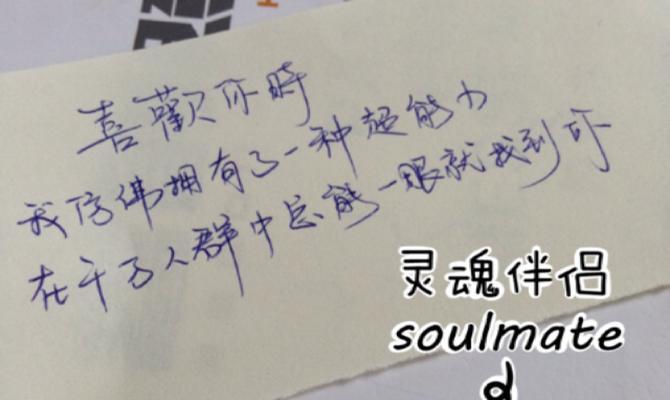 喜歡你時
我仿佛拥有了一种超能力
在千万人群中总能一眼就找到你
灵魂伴侣
soulmate
d